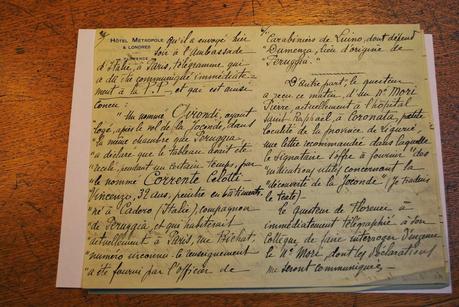 HÔTEL MÉTROPOLE
& LONDRES
Qu'il a envoyé hier
soir à l'ambassade
d'Italie, à Paris, télégramme qui
a dû la communiquer immédiate-
ment à la et qui est ainsi
concu :
"Un nommé ayant
logé, après le vol de la Joconde, dans
la même chambre que Peruggia
a déclaré que le tableau avait été
recélé, pendant un certain temps, par
le nommé Corrente Celotti
Vincenzo, 32 ans, peintre en bâtiments,
né à Cadero (Italie), compagnon
de Peruggia, et qui habiterait
actuellement à Paris, rue Bichat,
numéro inconnu. Ce renseignement
a été fourni par l'officier de
Carabiniers de Luino, dont dépend
Dumenza, lieu d'origine de
"Peruggia".
D'autre part, le questeur
a reçu ce matin, d'un Mr Mori
Pierre, actuellement à l'hôpital
Saint-Raphaël, à Coronata, petite
localité de la province de Ligurie,
une lettre recommandée dans laquelle
le signataire s'offre à fournir "des
"indications utiles concernant la
"découverte de la Joconde" (Je traduis
le texte) -
Le Questeur de Florence a
immédiatement télégraphié à son
Collègue de faire interroger d'urgence
le Mr Mori, dont les déclarations
me seront communiquées